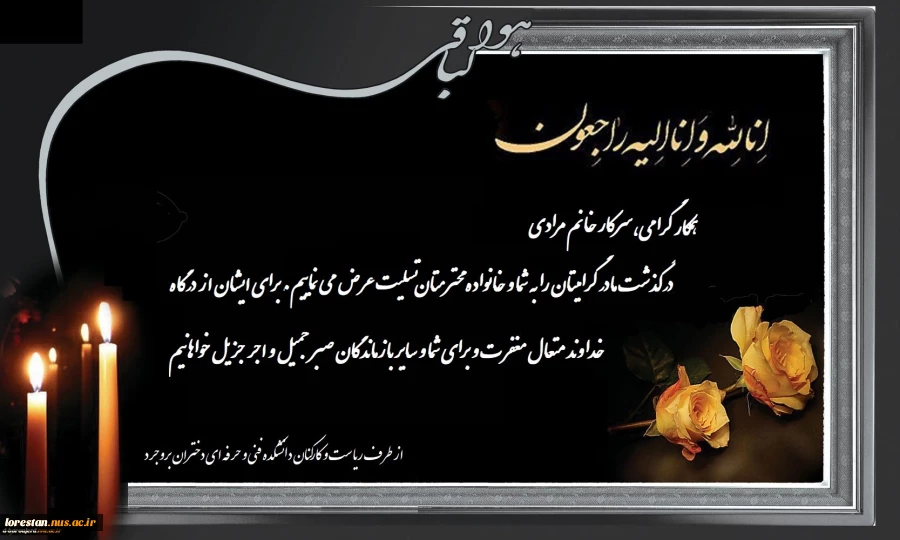 هوالباقی
اِنا لِلّه وَ اِنا اِلیه راجِعون
همکار گرامی، سرکار خانم مرادی
درگذشت مادر گرامیتان را به شما و خانواده محترمتان تسلیت عرض می نماییم. برای ایشان از درگاه
خداوند متعال مغفرت و برای شما و سایر بازماندگان صبر جمیل و اجر جزیل خواهانیم
از طرف ریاست و کارکنان دانشکده فنی و حرفه ای دختران بروجرد
lorestan.nus.ac.ir